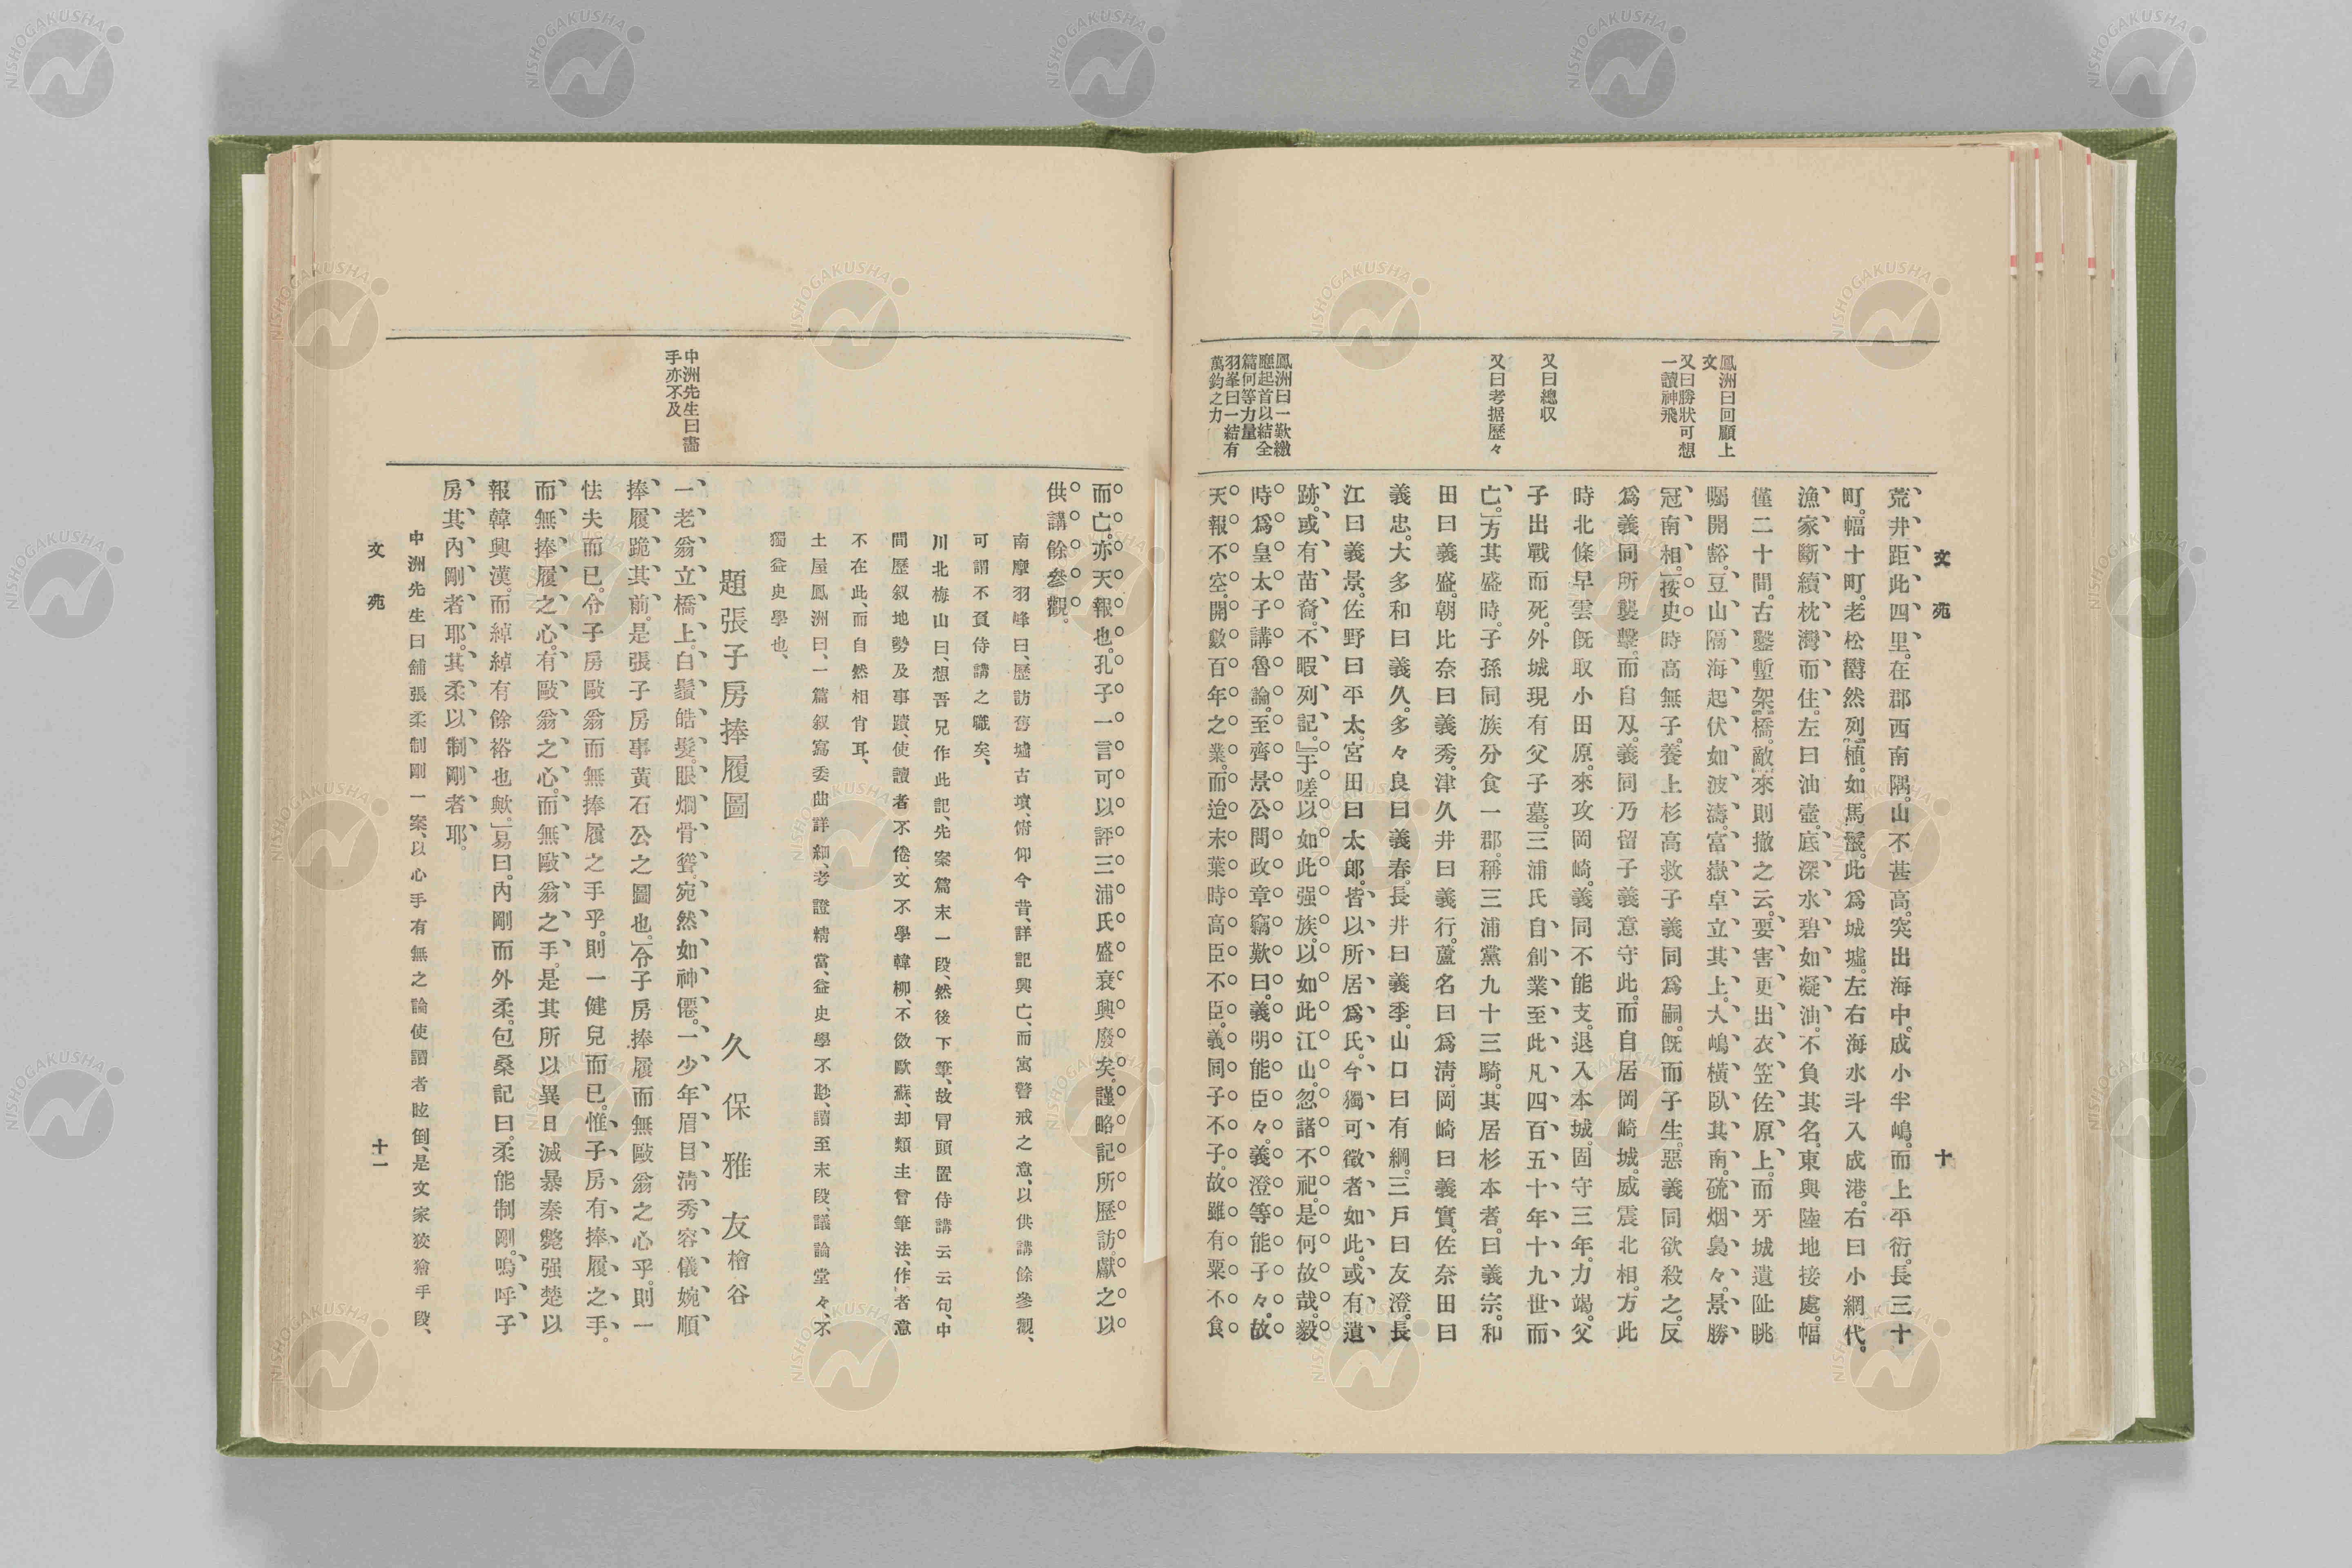 文苑
十
鳳洲曰回顧上
文
又曰勝狀可想
一讀神飛
又曰總収
又曰考据歷々
鳳洲曰一歎繳
應起首以結全
篇何等力量
羽峯曰一結有
萬鈞之力
荒井距此四里。在郡西南隅。山不甚高。突出海中。成小半嶋。而上平衍。長三十
町。幅十町。老松欝然列植。如馬鬣。此爲城墟。左右海水斗入成港。右曰小網代。
漁家斷續枕灣而住。左曰油壺。底深水碧如凝油。不負其名。東與陸地接處。幅
僅二十間。古鑿塹架橋。敵來則撤之云。要害更出衣笠佐原上。而牙城遺阯眺
矚開豁。豆山隔海起伏如波濤。富嶽卓立其上。大嶋橫臥其南。硫烟裊々。景勝
冠南相。」按史時高無子。養上杉高救子義同爲嗣。旣而子生。惡義同欲殺之。反
爲義同所襲擊。而自刄。義同乃留子義意守此。而自居岡崎城。威震北相。方此
時北條早雲旣取小田原。來攻岡崎。義同不能支。退入本城。固守三年。力竭。父
子出戰而死。外城現有父子墓。三浦氏自創業至此。凡四百五十年。十九世而
亡。」方其盛時。子孫同族分食一郡。稱三浦黨九十三騎。其居杉本者。曰義宗。和
田曰義盛。朝比奈曰義秀。津久井曰義行。蘆名曰爲淸。岡崎曰義實。佐奈田曰
義忠。大多和曰義久。多々良曰義春。長井曰義季。山口曰有綱。三戶曰友澄。長
江曰義景。佐野曰平太。宮田曰太郎。皆以所居爲氏。今獨可徵者如此。或有遺
跡。或有苗裔。不暇列記。』于嗟以如此强族。以如此江山。忽諸不祀。是何故哉。毅
時爲皇太子講魯論。至齊景公問政章。竊歎曰。義明能臣々。義澄等能子々。故
天報不空。開數百年之業。而迨末葉時高臣不臣。義同子不子。故雖有粟不食
而亡。亦天報也。孔子一言可以評三浦氏盛衰興廢矣。謹略記所歷訪。獻之以
供講餘參觀。
南摩羽峰曰、歷訪舊墟古墳、俯仰今昔、詳記興亡、而寓警戒之意、以供講餘參觀、
可謂不負侍講之職矣、
川北梅山曰、想吾兄作此記、先案篇末一段、然後下筆、故冐頭置侍講云云句、中
間歷叙地勢及事蹟、使讀者不倦、文不學韓柳、不傚歐蘇、却類主曾筆法、作者意
不在此、而自然相肖耳、
土屋鳳洲曰、一篇叙寫委曲詳細、考證精當、益史學不尠、讀至末段、議論堂々、不
獨益史學也、
題張子房捧履圖
久保雅友檜谷
中洲先生曰畵
手亦不及
一老翁立橋上。白鬚皓髮。眼烱骨聳。宛然如神僊。一少年眉目淸秀。容儀婉順
捧履跪其前。是張子房事黃石公之圖也。」令子房捧履而無敺翁之心乎。則一
怯夫而已。令子房敺翁而無捧履之手乎。則一健兒而已。惟子房有捧履之手。
而無捧履之心。有敺翁之心。而無敺翁之手。是其所以異日滅暴秦斃强楚以
報韓興漢。而綽綽有餘裕也歟。」易曰。內剛而外柔。包桑記曰。柔能制剛。嗚呼子
房。其內剛者耶。其柔以制剛者耶。
中洲先生曰舖張柔制剛一案、以心手有無之論使讀者眩倒、是文家狡獪手段、
文苑
十一